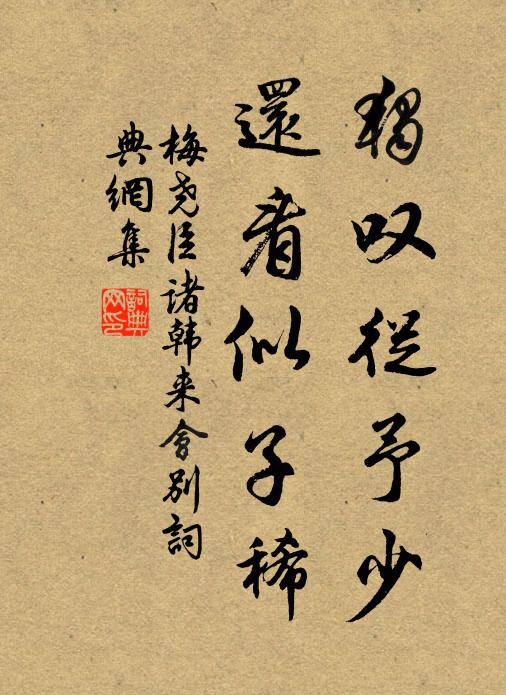 獨叹從予少
還看似子稀
梅尧臣诸韩来會别詞
典網集
詞典
网印